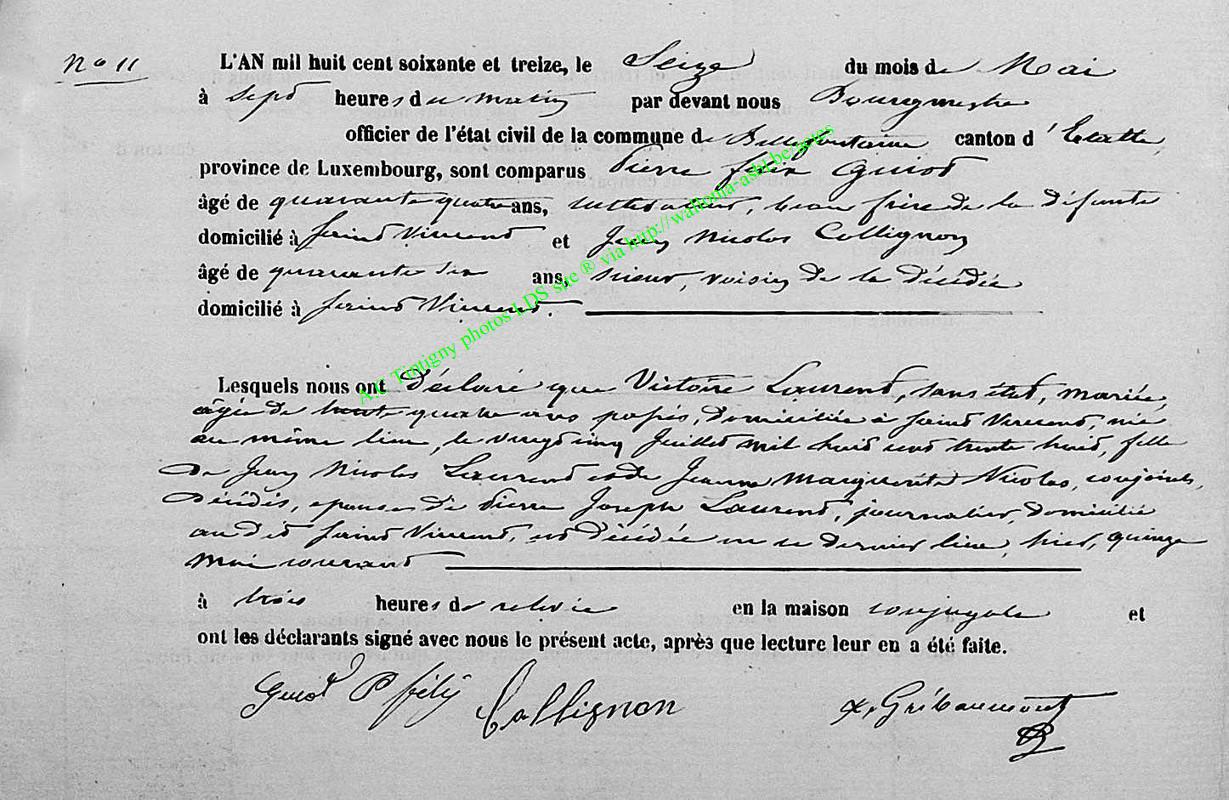 N° 11
L'AN mil huit cent soixante et treize, le Seize du mois de Mai
à sept heures du matin par devant nous Bourgmestre
officier de l'état civil de la commune de Bellefontaine canton d'Etalle,
province de Luxembourg, sont comparus Pierre félix Guiot
âgé de quarante quatre ans, cultivateur, beau frère de la défunte
domicilié à saint Vincent et Jean Nicolas Collignon
âgé de quarante six ans, sieur, voisin de la décédée
domicilié à saint Vincent.
Lesquels nous ont déclaré que Victoire Laurent, sans état, mariée,
âgée de trente quatre ans passés, domiciliée à saint Vincent, née
au même lieu, le vingt cinq Juillet mil huit cent trente huit, fille
de Jean Nicolas Laurent et de Jeanne Marguerite Nicolas, conjoints,
décédés, épouse de Pierre Joseph Laurent, journalier, domicilié
au dit saint Vincent, est décédée en ce dernier lieu, hier, quinze
Mai courant
à trois heures de relevée en la maison conjugale et
ont les déclarants signé avec nous le présent acte, après que lecture leur en a été faite.
Guiot P félix Collignon x. Gribaumont
A.C Tintigny photos LDS site ® via http://wallonia-asbl.be/actes